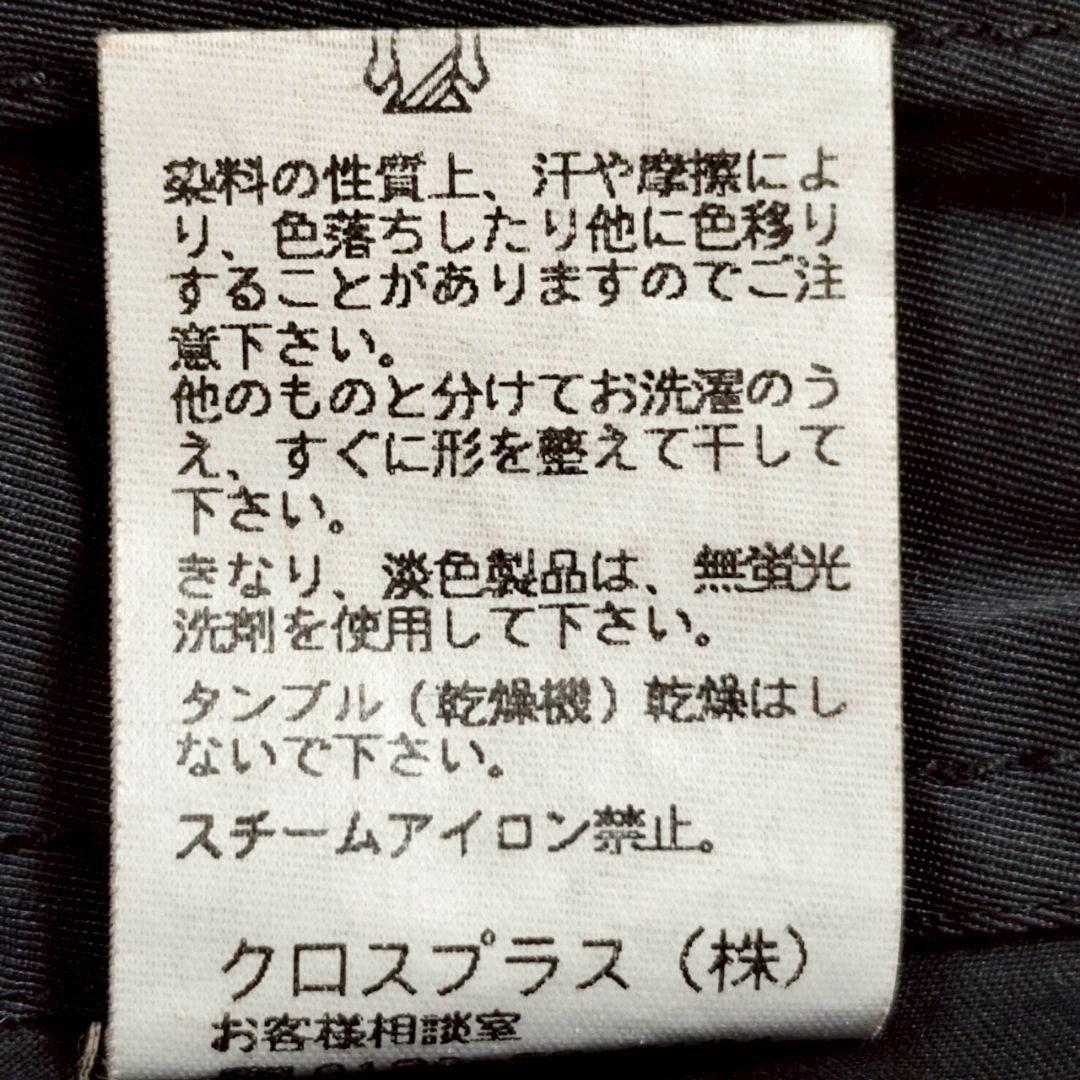 染料の性質上、汗や摩擦によ
り、色落ちしたり他に色移り
することがありますのでご注
意下さい。
他のものと分けてお洗濯のう
え、すぐに形を整えて干して
下さい。
きなり、淡色製品は、無蛍光
洗剤を使用して下さい。
タンブル（乾燥機）乾燥はし
ないで下さい。
スチームアイロン禁止。
クロスプラス（株）
お客様相談室